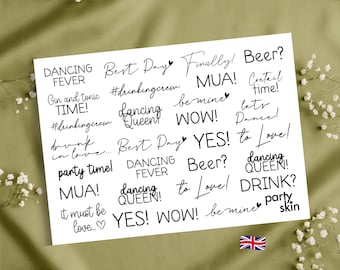 DANCING FEVER Best Day Finally! Beer?
Gin and tonic TIME! #drinkingcrew MUA! Coctail time!
#drinkingcrew dancing QUEEN! be mine WOW! let's Dance!
drunk in love... Best Day YES! to Love!
party time! DANCING FEVER Beer? dancing QUEEN!
MUA! dancing QUEEN! to Love! DRINK?
it must be love... YES! WOW! be mine party skin